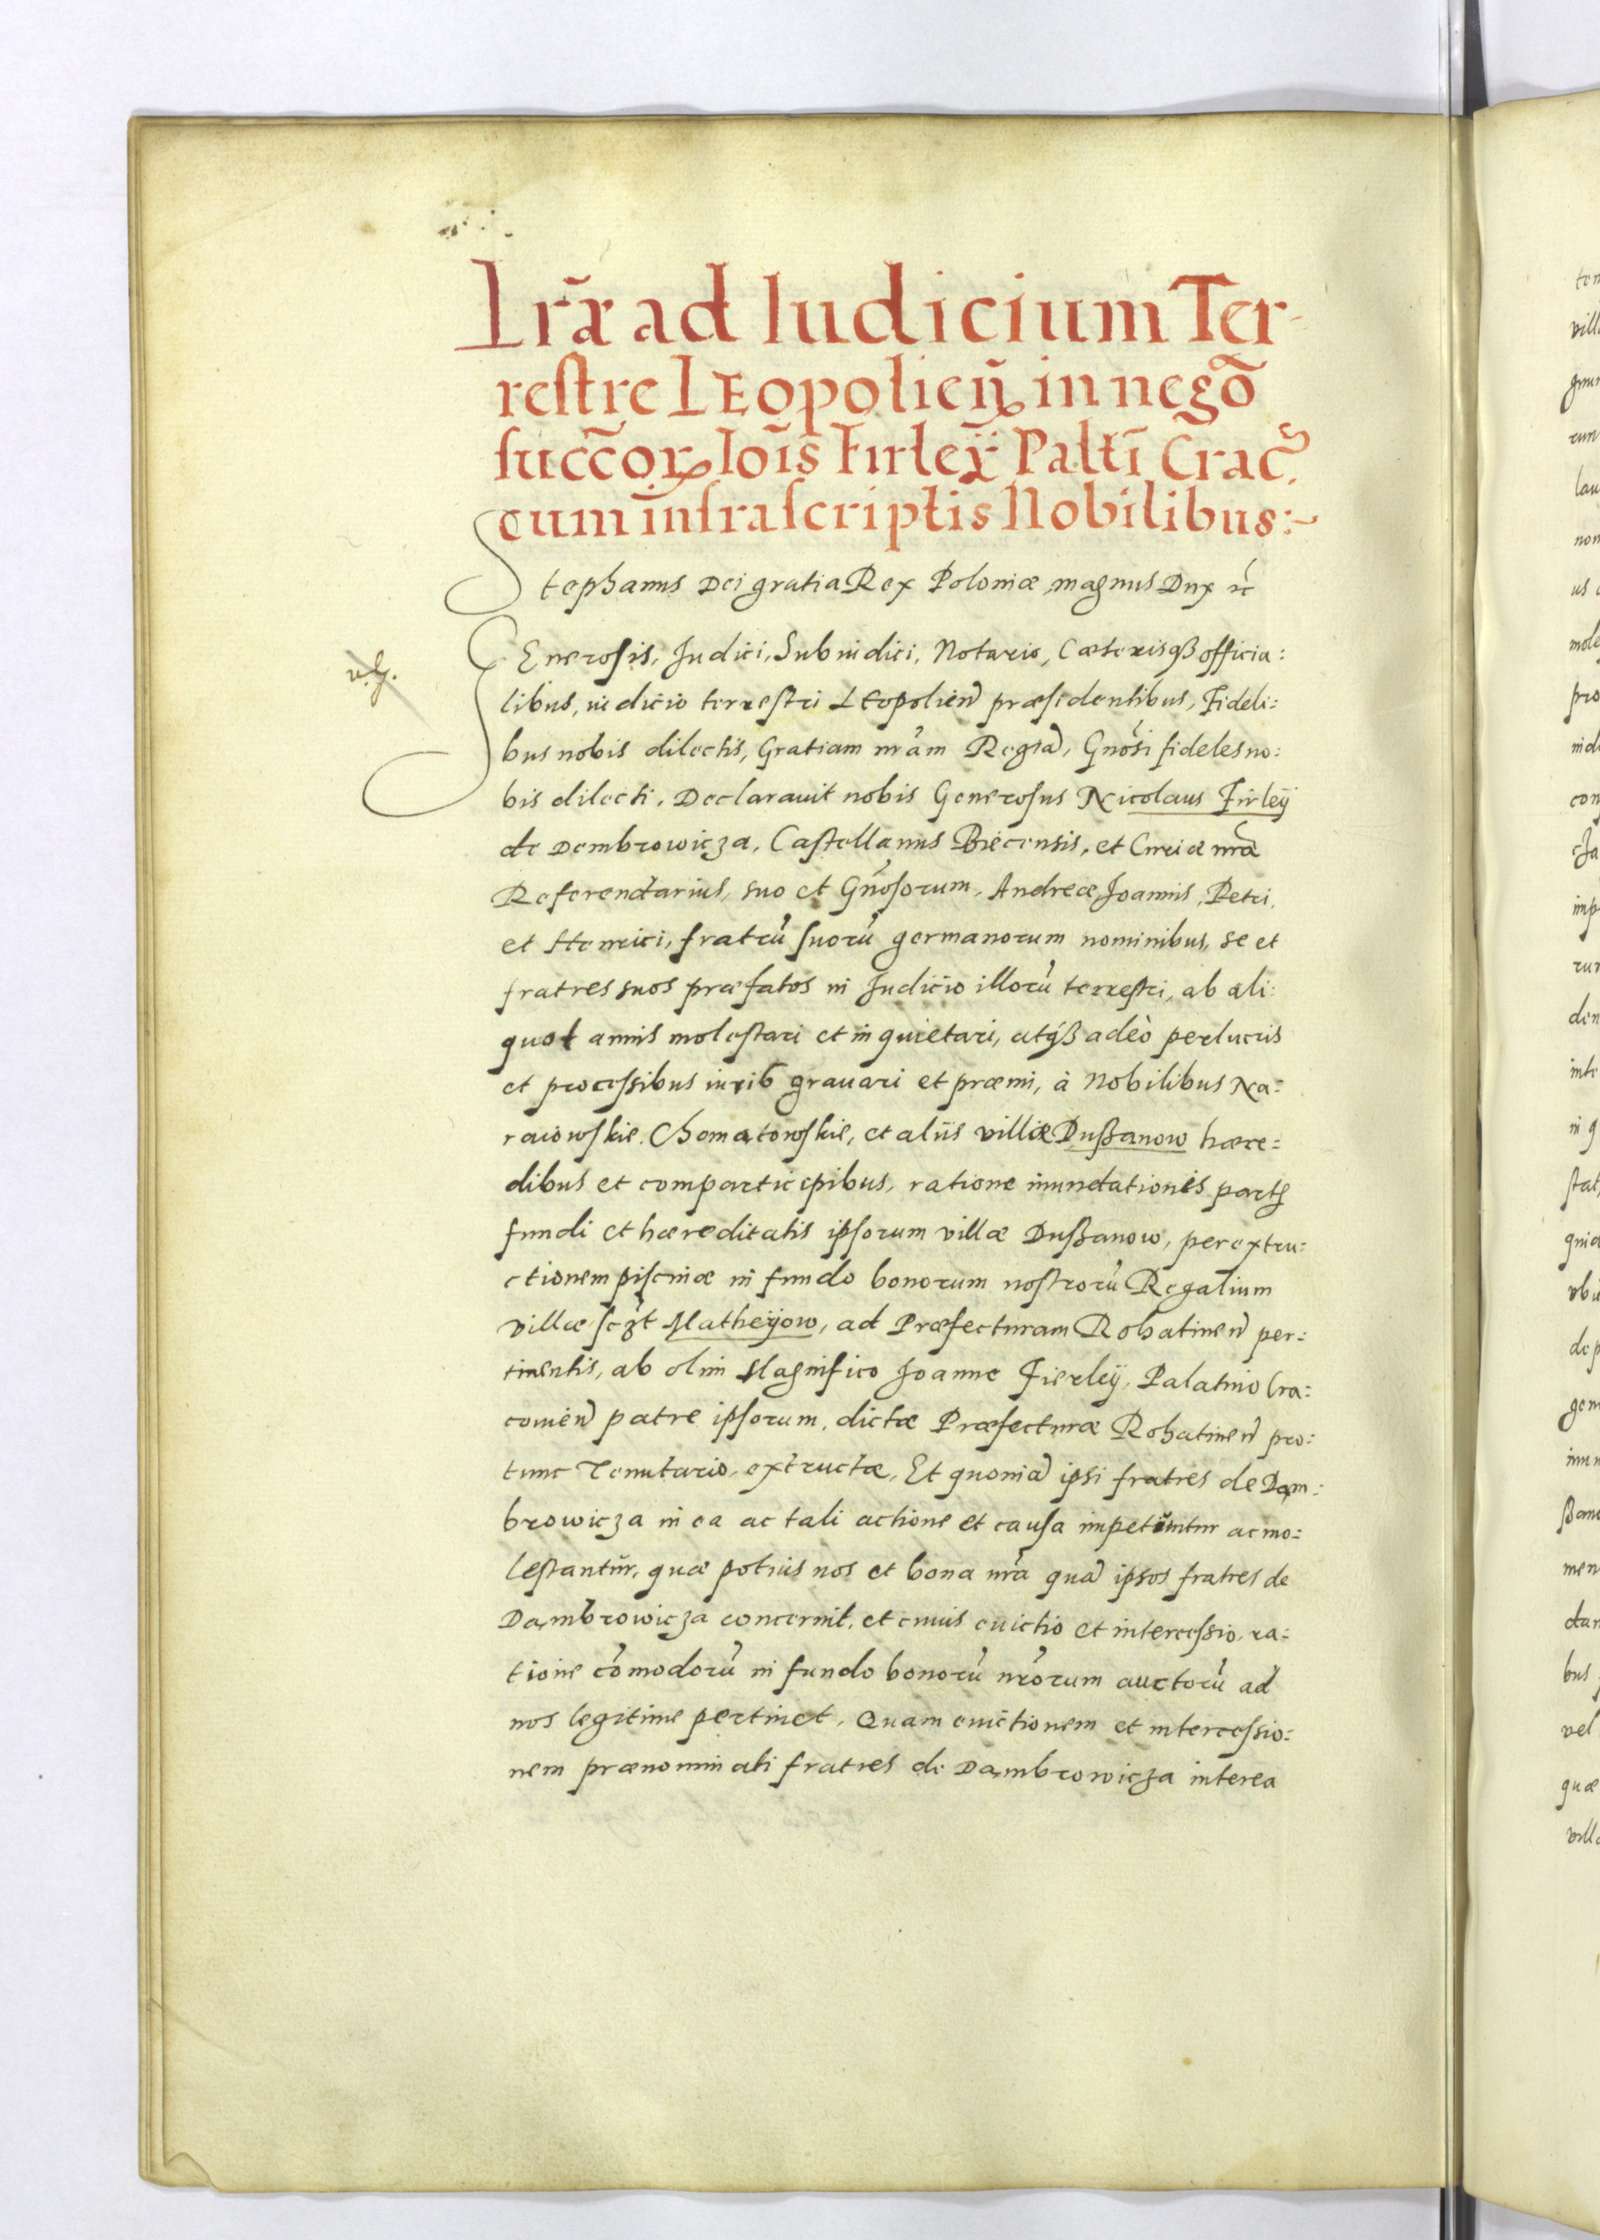 Lr̃æ ad Iudicium Ter-
restre LEopolien̄ in nego͂
succ͂or Io͂is Firleÿ Palt͂i Crac͂.
cum infrascriptis Nobilibus:~
Stephanus Dei gratia Rex Poloniæ, magnus Dux ꝛc̃
GEnerosis, Judici, Subiudici, Notario, Cæterisqꝫ officia:
libus, iudicio terrestri LEopolien̄ præsidentibus, Fideli:
bus nobis dilectis, Gratiam nr̃am Regiã, Gnõsi fideles no:
bis dilecti. Declarauit nobis Generosus Nicolaus Firleÿ
de Dembrowicza, Castellanus Biecensis, et Curiæ nr̃a
Referendarius, suo et Gnõsorum, Andreæ, Joannis, Petri,
et Henrici, fratrũ suorũ germanorum nominibus, se et
fratres suos præfatos in Judicio illorũ terrestri, ab ali:
quot annis molestari et inquietari, atqꝫ adeò per lucris
et processibus iurib grauari et præmi, à Nobilibus Na:
raiowskie, Chomatowskie, et alijs villæ Dußanow hære:
dibus et comparticipibus, ratione inundationis part
fundi et hæreditatis ipsorum villæ Dußanow, per extru:
ctionem piscinæ in fundo bonorum nostrorũ Regalium
villæ sczt Matheÿow, ad Præfecturam Rohatinen̄ per:
tinentis, ab olim Magnifico Joanne Fierleÿ, Palatino Cra:
couien̄ patre ipsorum, dictæ Præfecturæ Rohatinen̄ pro:
tunc Tenutario, extructæ, Et quoniã ipsi fratres de Dam:
browicza in ea ac tali actione et causa impetuntur ac mo:
lestantur, quæ potius nos et bona nr̃a quã ipsos fratres de
Dambrowicza concernit, et cuius euictio et intercessio, ra:
tione cõmodorũ in fundo bonorũ nr̃orum auctorũ ad
nos legitime pertinet, Quam euictionem et intercessio:
nem prænominati fratres de Dambrowicza interea